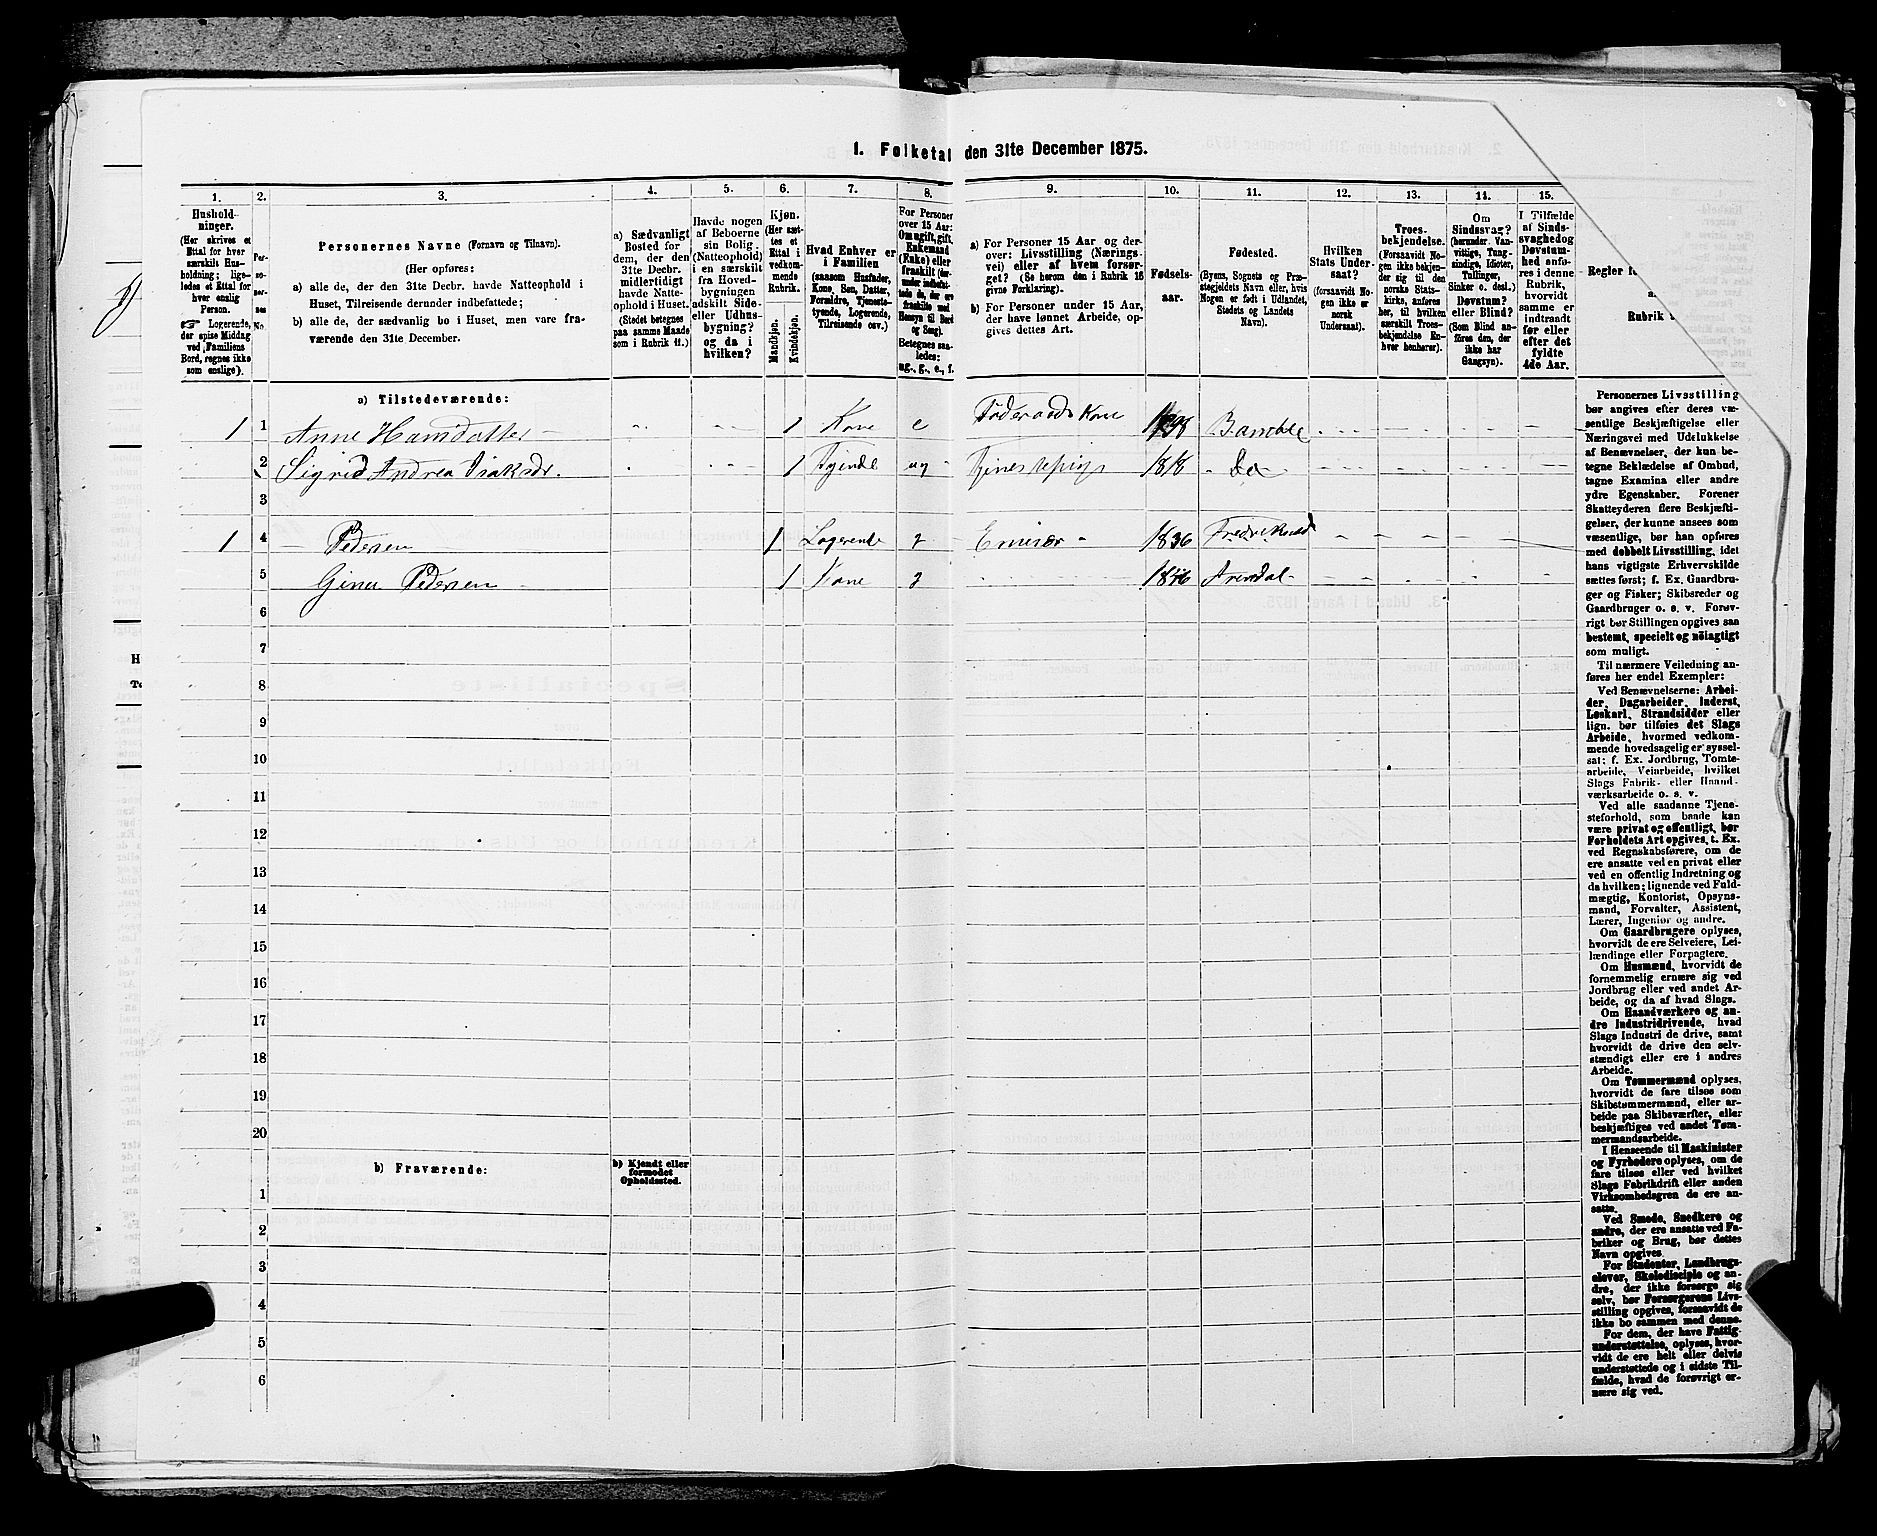 1. Folketal den 31te December 1875.
1.
2.
3.
4.
5.
6.
7.
8.
9.
10.
11.
12.
13.
14.
15.
Hushold-
ninger.
(Her skrives et
Ettal for hver
særskilt Hus-
holdning; lige-
ledes et Ettal for
hver enslig
Person.
☞ Logerende,
der spise Middag
ved Familiens
Bord, regnes ikke
som enslige).
Per-
so-
ner-
nes
No.
Personernes Navne (Fornavn og Tilnavn).
(Her opføres:
a) alle de, der den 31te Decbr. havde Natteophold i
Huset, Tilreisende derunder indbefattede;
b) alle de, der sædvanlig bo i Huset, men vare fra-
værende den 31te December.
a) Sædvanligt
Bosted for
dem, der den
31te Decbr.
midlertidigt
havde Natte-
ophold i Huset.
(Stedet betegnes
paa samme Maade
som i Rubrik 11.)
Havde nogen
af Beboerne
sin Bolig
(Natteophold)
i en særskilt
fra Hoved-
bygningen
adskilt Side-
eller Udhus-
bygning?
og da i
hvilken?
Kjøn.
(Her sæt-
tes et
Ettal i
vedkom-
mende
Rubrik.
Mandkjøn.
Kvindekjøn.
Hvad Enhver er
i Familien
(saasom Husfader,
Kone, Søn, Datter,
Forældre, Tjeneste-
tyende, Logerende,
Tilreisende osv.)
For Personer
over 15 Aar:
Om ugift, gift,
Enkemand
(Enke) eller
fraskilt (der-
under indbefat-
tede de, der ere
fraskilte med
Hensyn til Bord
og Seng).
Betegnes saa-
ledes:
ug., g., e., f.
a) For Personer 15 Aar og der-
over: Livsstilling (Nærings-
vei) eller af hvem forsør-
get? (Se herom den i Rubrik 16
givne Forklaring).
b) For Personer under 15 Aar,
der have lønnet Arbeide, op-
gives dettes Art.
Fødsels-
aar.
Fødested.
(Byens, Sognets og Præ-
stegjeldets Navn eller, hvis
Nogen er født i Udlandet,
Stedets og Landets
Navn).
Hvilken
Stats Under-
saat?
(forsaavidt No-
gen ikke er
norsk
Undersaat).
Troes-
bekjendelse.
(Forsaavidt No-
gen ikke bekjen-
der sig til den
norske Stats-
kirke, anføres
her, til hvilken
særskilt Troes-
bekjendelse En-
hver henhører).
Om
Sindssvag?
(herunder Van-
vittige, Tung-
sindige, Idioter,
Tullinger,
Sinker o. desl.)
Døvstum?
eller Blind?
(Som Blind an-
føres den, der
ikke har
Gangsyn).
I Tilfælde
af Sinds-
svaghed og
Døvstum-
hed anfø-
res i denne
Rubrik,
hvorvidt
samme er
indtraadt
før eller
efter det
fyldte
4de Aar.
Regler f
Rubrik
a) Tilstedeværende:
1 1 Anne Hansdatter 1 Kone e Føderaads Kone Bamble
2 Sigrid Andrea Isaksdr. 1 Tjende ug 1818 Do
3
1 4 Pedersen 1 Logerende g 1836
5 Gina Pedersen 1 Kone g 1846 Arendal
6
7
8
9
10
11
12
13
14
15
16
17
18
19
20
b) Fraværende:
b) Kjendt eller
formodet
Opholdssted.
1
2
3
4
5
6
Personernes Livsstilling
bør angives efter deres væ-
sentlige Beskjæftigelse eller
Næringsvei med Udelukkelse
af Benævnelser, der kun be-
tegne Beklædelse af Ombud,
tagne Examina eller andre
ydre Egenskaber. Forener
Skatteyderen flere Beskjæfti-
gelser, der kunne ansees som
væsentlige, bør han opføres
med dobbelt Livsstilling, idet
hans vigtigste Erhvervskilde
sættes først; f. Ex. Gaardbru-
ger og Fisker; Skibsreder og
Gaardbruger o. s. v. Forøv-
rigt bør Stillingen opgives saa
bestemt, specielt og nöiagtigt
som muligt.
Til nærmere Veiledning an-
føres her endel Exempler:
Ved Benævnelserne: Arbei-
der, Dagarbeider, Inderst,
Løskarl, Strandsidder eller
lign. bør tilføies det Slags
Arbeide, hvormed vedkom-
mende hovedsagelig er syssel-
sat; f. Ex. Jordbrug, Tomte-
arbeide, Veiarbeide, hvilket
Slags Fabrik- eller Haand-
værksarbeide o. s. v.
Ved alle saadanne Tjene-
steforhold, som baade kan
være privat og offentligt, bør
Forholdets Art opgives, t. Ex.
ved Regnskabsførere, om de
ere ansatte ved en privat eller
ved en offentlig Indretning og
da hvilken; lignende ved Fuld-
mægtig, Kontorist, Opsyns-
mand, Forvalter, Assistent,
Lærer, Ingeniør og andre.
Om Gaardbrugere oplyses,
hvorvidt de ere Selveiere, Lei-
lændinge eller Forpagtere.
Om Husmænd, hvorvidt de
fornemmelig ernære sig ved
Jordbrug eller ved andet Ar-
beide, og da af hvad Slags.
Om Haandværkere og an-
dre Industridrivende, hvad
Slags Industri de drive, samt
hvorvidt de drive den selv-
stændigt eller ere i andres
Arbeide.
Om Tømmermænd oplyses,
hvorvidt de fare tilsøs som
Skibstømmermænd, eller ar-
beide paa Skibsværfter, eller
beskjæftiges ved andet Tøm-
mermandsarbeide.
I Henseende til Maskinister
og Fyrbødere oplyses, om de
fare tilsøs eller ved hvilket
Slags Fabrikdrift eller anden
Virksomhedsgren de ere an-
satte.
Ved Smede, Snedkere og
andre, der ere ansatte ved Fa-
briker og Brug, bør dettes
Navn opgives.
For Studenter, Landbrugs-
elever, Skoledisciple og an-
dre, der ikke forsørge sig
selv, bør Forsørgerens Livs-
stilling opgives, forsaavidt de
ikke bo sammen med denne.
For dem, der have Fattig-
understøttelse, oplyses, hvor-
vidt de ere helt eller delvis
understøttede og i sidste Til-
fælde, hvad de forøvrigt er-
nære sig ved.